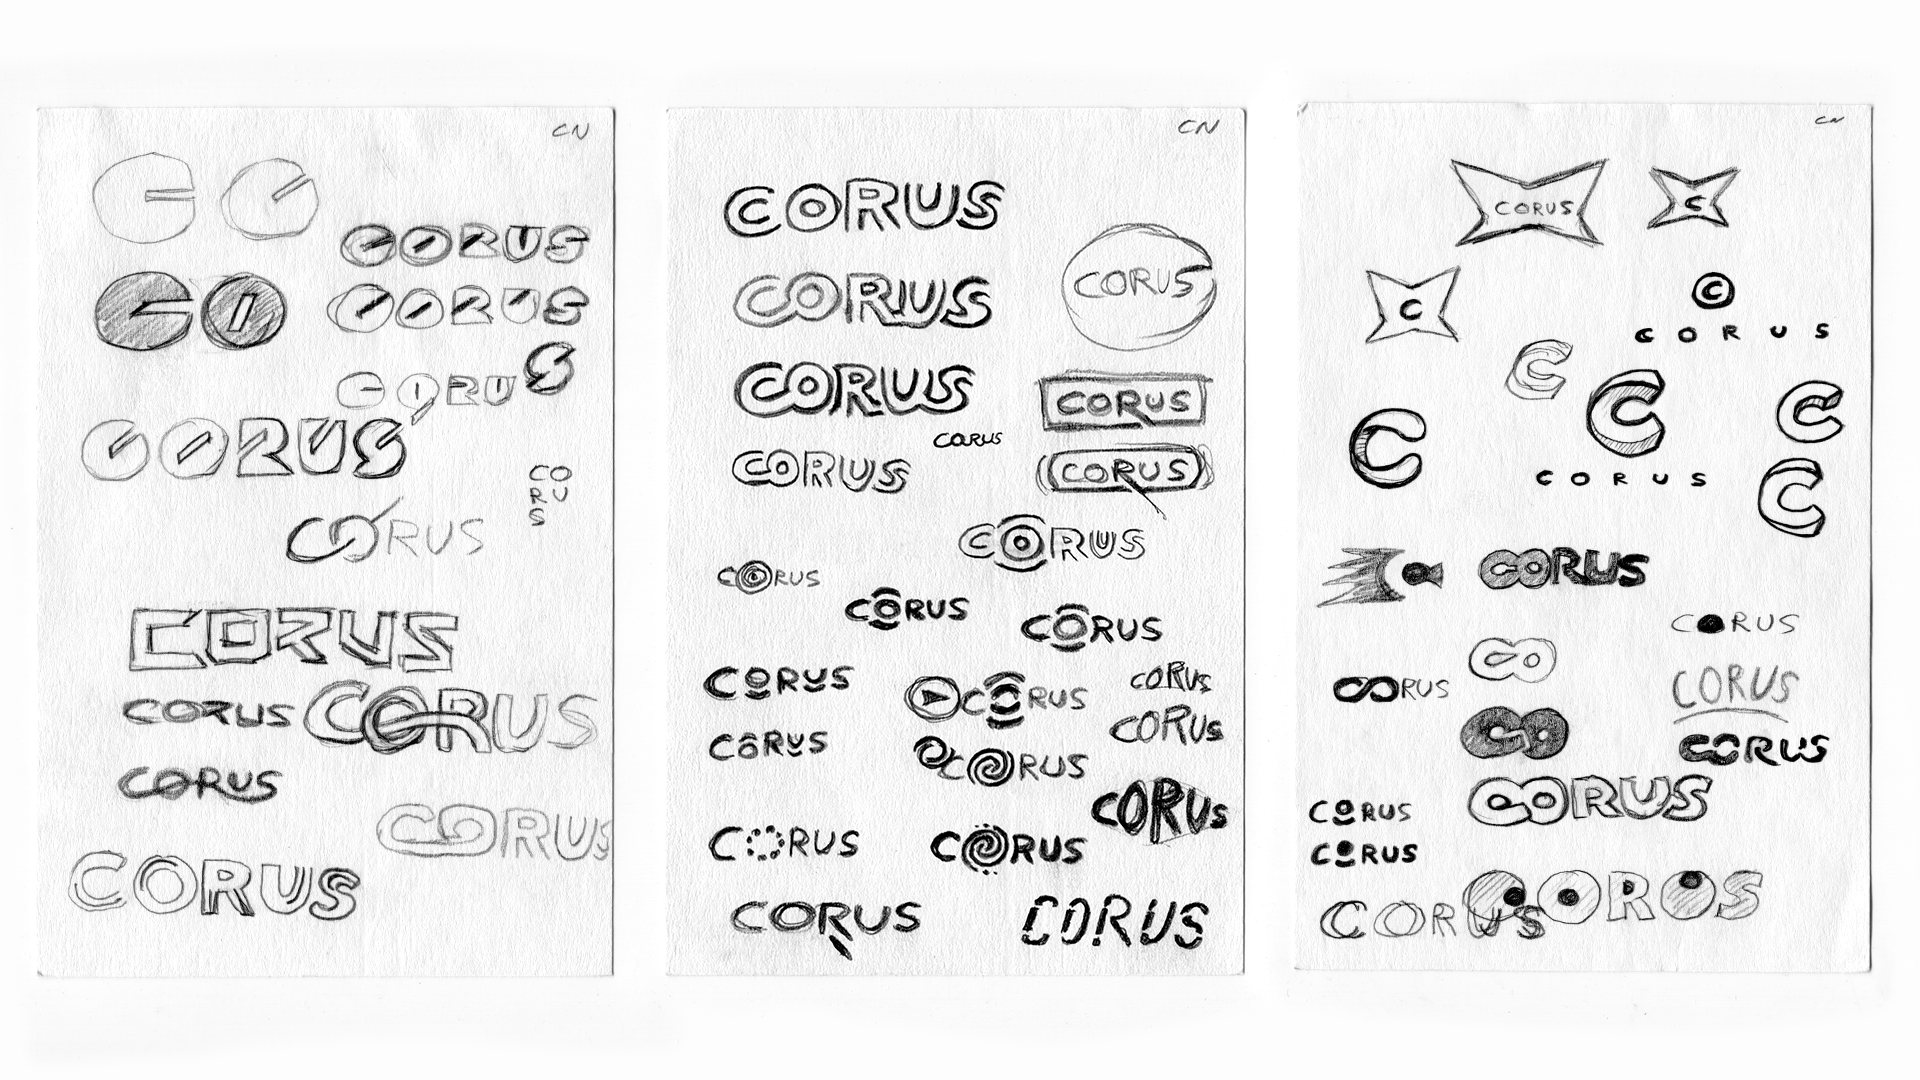 CN
C C
CORUS
CO
CORUS
CORUS
CORUS
CO
RU
S
CORUS
CORUS
CORUS
CORUS
CORUS
CORUS
CORUS
CN
CORUS
CORUS
CORUS
CORUS
CORUS
CORUS
CORUS
CORUS
CORUS
CORUS
CORUS
CORUS
CORUS
CORUS
CORUS
CORUS
CORUS
CORUS
CORUS
CORUS
CORUS
CORUS
CORUS
CORUS
CORUS
CN
CORUS
C
C
C
CORUS
C
C
C
C
CORUS
C
CORUS
CORUS
CO
CORUS
CORUS
CO
CORUS
CORUS
CORUS
CORUS
CORUS
COROS